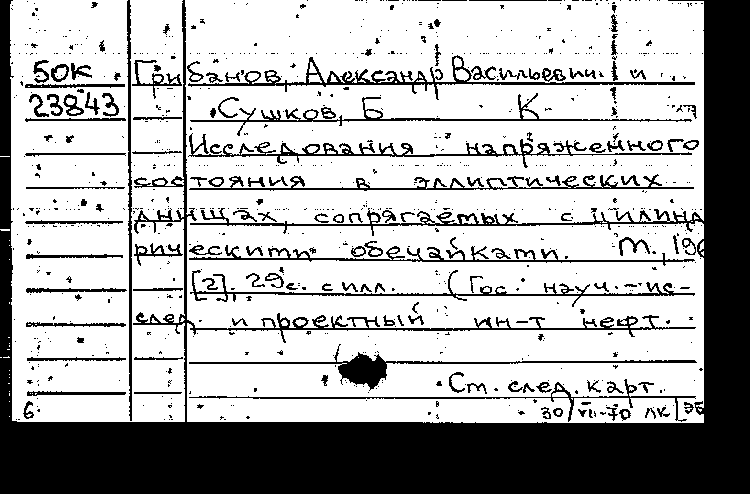 50к Грибанов, Александр Васильевич и
23843 Сушков, Б К.
Исследования напряженного
состояния в эллиптических
днищах, сопрягаемых с цилинд
рическими обечайками. М., 196
[2], 29с. с илл. (Гос. науч.-ис-
след. и проектный ин-т нефт.
См. след. карт.
6. 30/VII-70 ЛК